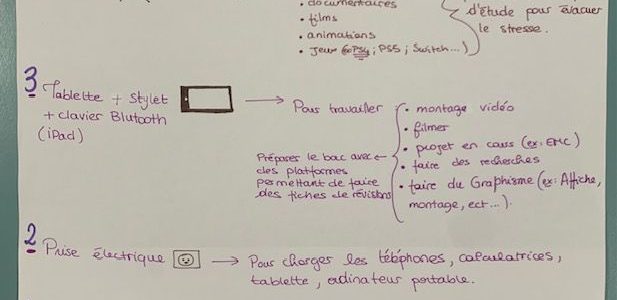 • documentaires
d'étude pour évacuer
• films
le stresse.
• animations
• Jeux (PS4; PS5; Switch...)
3 Tablette + Stylet
+ clavier Blutooth
(iPad)
Pour travailler
• montage vidéo
• filmer
• projet en cours (ex: EMC)
• faire des recherches
• faire du Graphisme (ex: Affiche,
montage, ect...).
Préparer le bac avec
des platformes
permettant de faire
des fiches de révisions
2 Prise électrique
Pour charger les téléphones, calculatrices,
tablette, ordinateur portable.